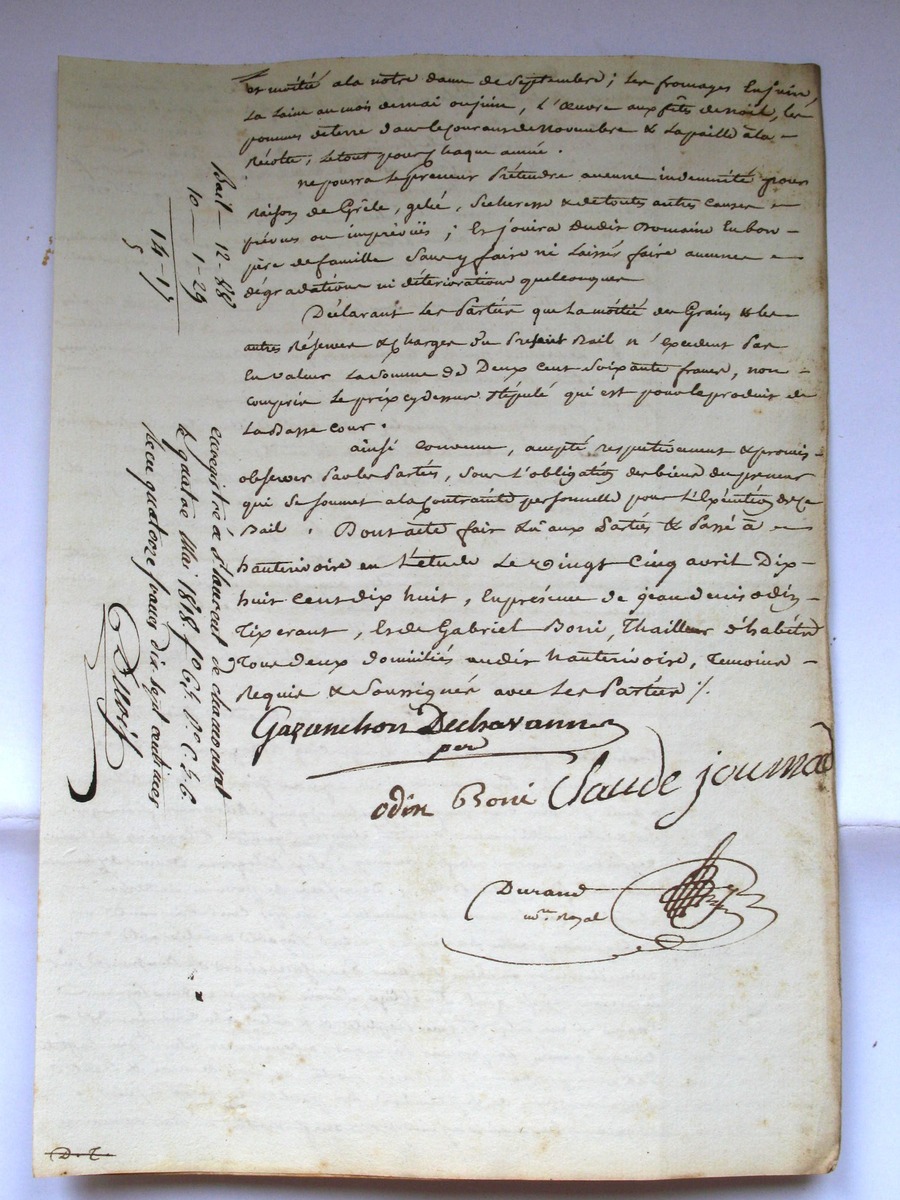 et moitié a la notre dame de Septembre; les fromages En juin,
La laine au mois de mai ou juin, L'œuvre aux fêtes de noël, les
pommes de terre dans le courant de novembre & La paille à la
Récolte; le tout pour chaque année.
ne pourra le preneur Prétendre aucune indemnité pour
Raison de Grêle, gelée, Sécheresse & de touts autres causes
prévus ou imprévuës; Et jouira dudit Domaine En bon
père de famille Sans y faire ni Laisser faire aucunes
dégradations ni déteriorations quelconques
Déclarant les Parties que La moitié des Grains & les
autres Réserves & charges du Présent Bail n'Excedent Pas
En valeur La somme de Deux cent Soixante francs, non
compris le prix cy dessus stipulé qui est pour le produit de
La Basse cour.
ainsi convenu, accepté respectivement & promis
observer Par les Parties, Sous L'obligation des biens du preneur
qui se soumet a la Contrainte personnelle pour l'Exécution de ce
Bail. Dont acte fait & Lu aux Parties & Passé à
hauterivoire en l'étude Le vingt Cinq avril Dix
huit cent dix huit, En présence de jean denis odin
Tixerant, Et de Gabriel Boni, Thailleur d'habits
Tous deux domiciliés audit hauterivoire, Temoins
Requis & Soussignés avec Les Parties ./.
Gazanchon Dechavanne
odin Boni Claude journad
Durand
no.re Royal
Bail — 12-88
10 — 1-29
14-17
enregistré à St laurent de chamousset
le quatre Mai 1818. f° 67. V° C. 5. 6.
Reçu quatorze francs dix sept centimes
D.T.